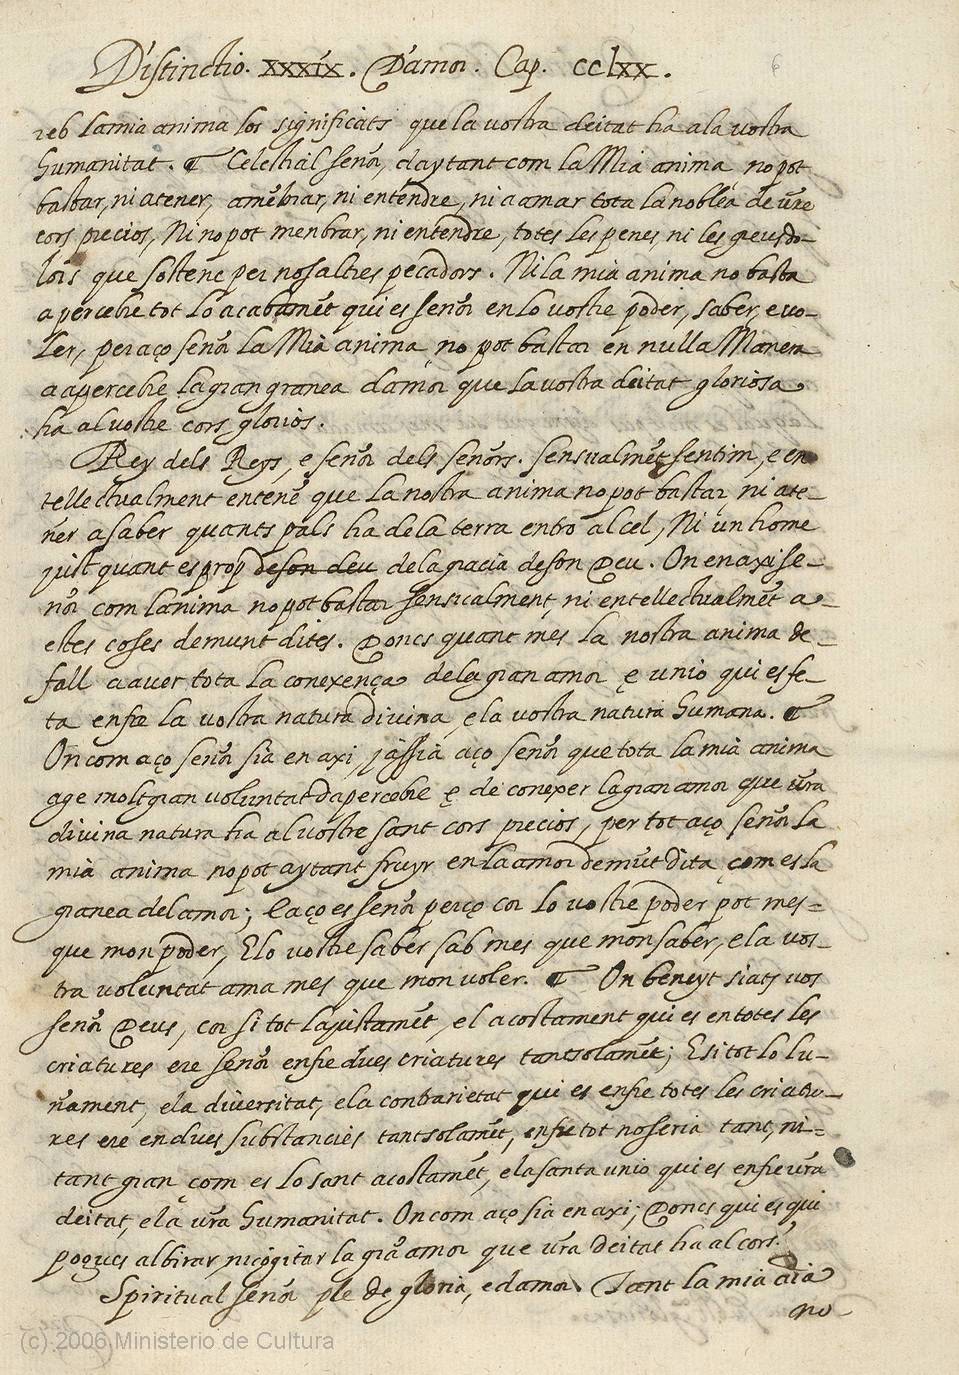 Distinctio. xxxix. D'amor. Cap. cclxx.
6
reb la mia anima los significats que la vostra deitat ha a la vostra
humanitat. ¶ Celestial señor, daytant com la Mia anima no pot
bastar, ni atener, amẽbrar, ni entendre, ni a amar tota la noblea de vr̃e
cors precios, Ni no pot menbrar, ni entendre, totes les penes ni les greus do-
lors que sostenc per nosaltres pecadors. Ni la mia anima no basta
a percebre tot lo acabamẽt qui es señor en lo vostre poder, saber, e vo-
ler, per aço señor la Mia anima no pot bastar en nulla Manera
a apercebre la gran granea damor que la vostra deitat gloriosa
ha al vostre cors glorios.
Rey dels Reys, e señor dels señors. Sensualmẽt sentim, e en
tellectualment entenẽ que la nostra anima no pot bastar ni ate-
ñer a saber quants pals ha de la terra entro al cel, Ni un home
just quant es prop de son deu de la gracia de son Deu. On en axi se-
ñor com lanima no pot bastar sensualment, ni entellectualmẽt a-
estes coses demunt dites. Doncs quant mes la nostra anima de-
fall a aver tota la conexença de la gran amor e unio qui es fe-
ta enfre la vostra natura divina, e la vostra natura humana. ¶
On com aço señor sia en axi, jassia aço señor que tota la mia anima
age molt gran voluntat dapercebre e de conexer la gran amor que vr̃a
divina natura ha al vostre sant cors precios, per tot aço señor la
mia anima no pot aytant fruyr en la amor demũt dita com es la
granea del amor; E aço es señor perço cor lo vostre poder pot mes=
que mon poder, E lo vostre saber sab mes que mon saber, e la vos-
tra voluntat ama mes que mon voler. ¶ On beneyt siats vos
señor Deus, cor si tot lajustamẽt, e l acostament qui es en totes les
criatures ere señor enfre dues criatures tantsolamẽt; E si tot lo lu-
ñament, e la diversitat, e la contrarietat qui es enfre totes les criatu-
res ere en dues substancies tantsolamẽt, enfre tot no seria tant, ni=
tant gran com es lo sant acostamẽt, e la santa unio qui es enfre vr̃a
deitat, e la vr̃a humanitat. On com aço sia en axi; Doncs qui es qui
pogues albirar, ni cogitar la grã amor que vr̃a deitat ha al cors?
Spiritual señor ple de gloria, e damor. Tant la mia aĩa
no-
(c) 2006 Ministerio de Cultura